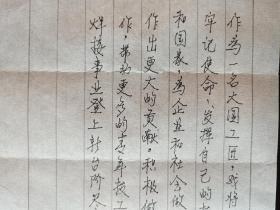 作为一名大国工匠，我将
牢记使命，发挥自己的
和国家，为企业和社会做
作出更大的贡献。积极做
作，带动更多的青年技工
焊接事业登上新台阶尽